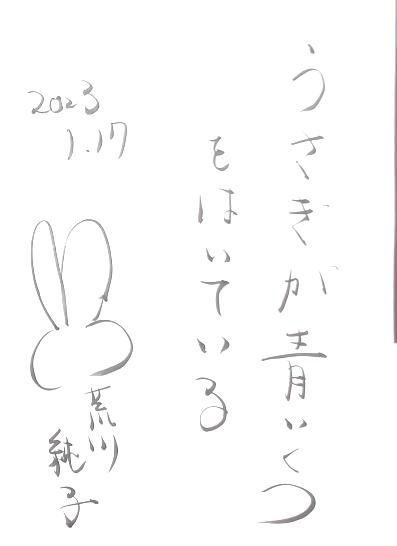 うさぎが青いくつ
をはいている
2023
1.17
荒川
純子